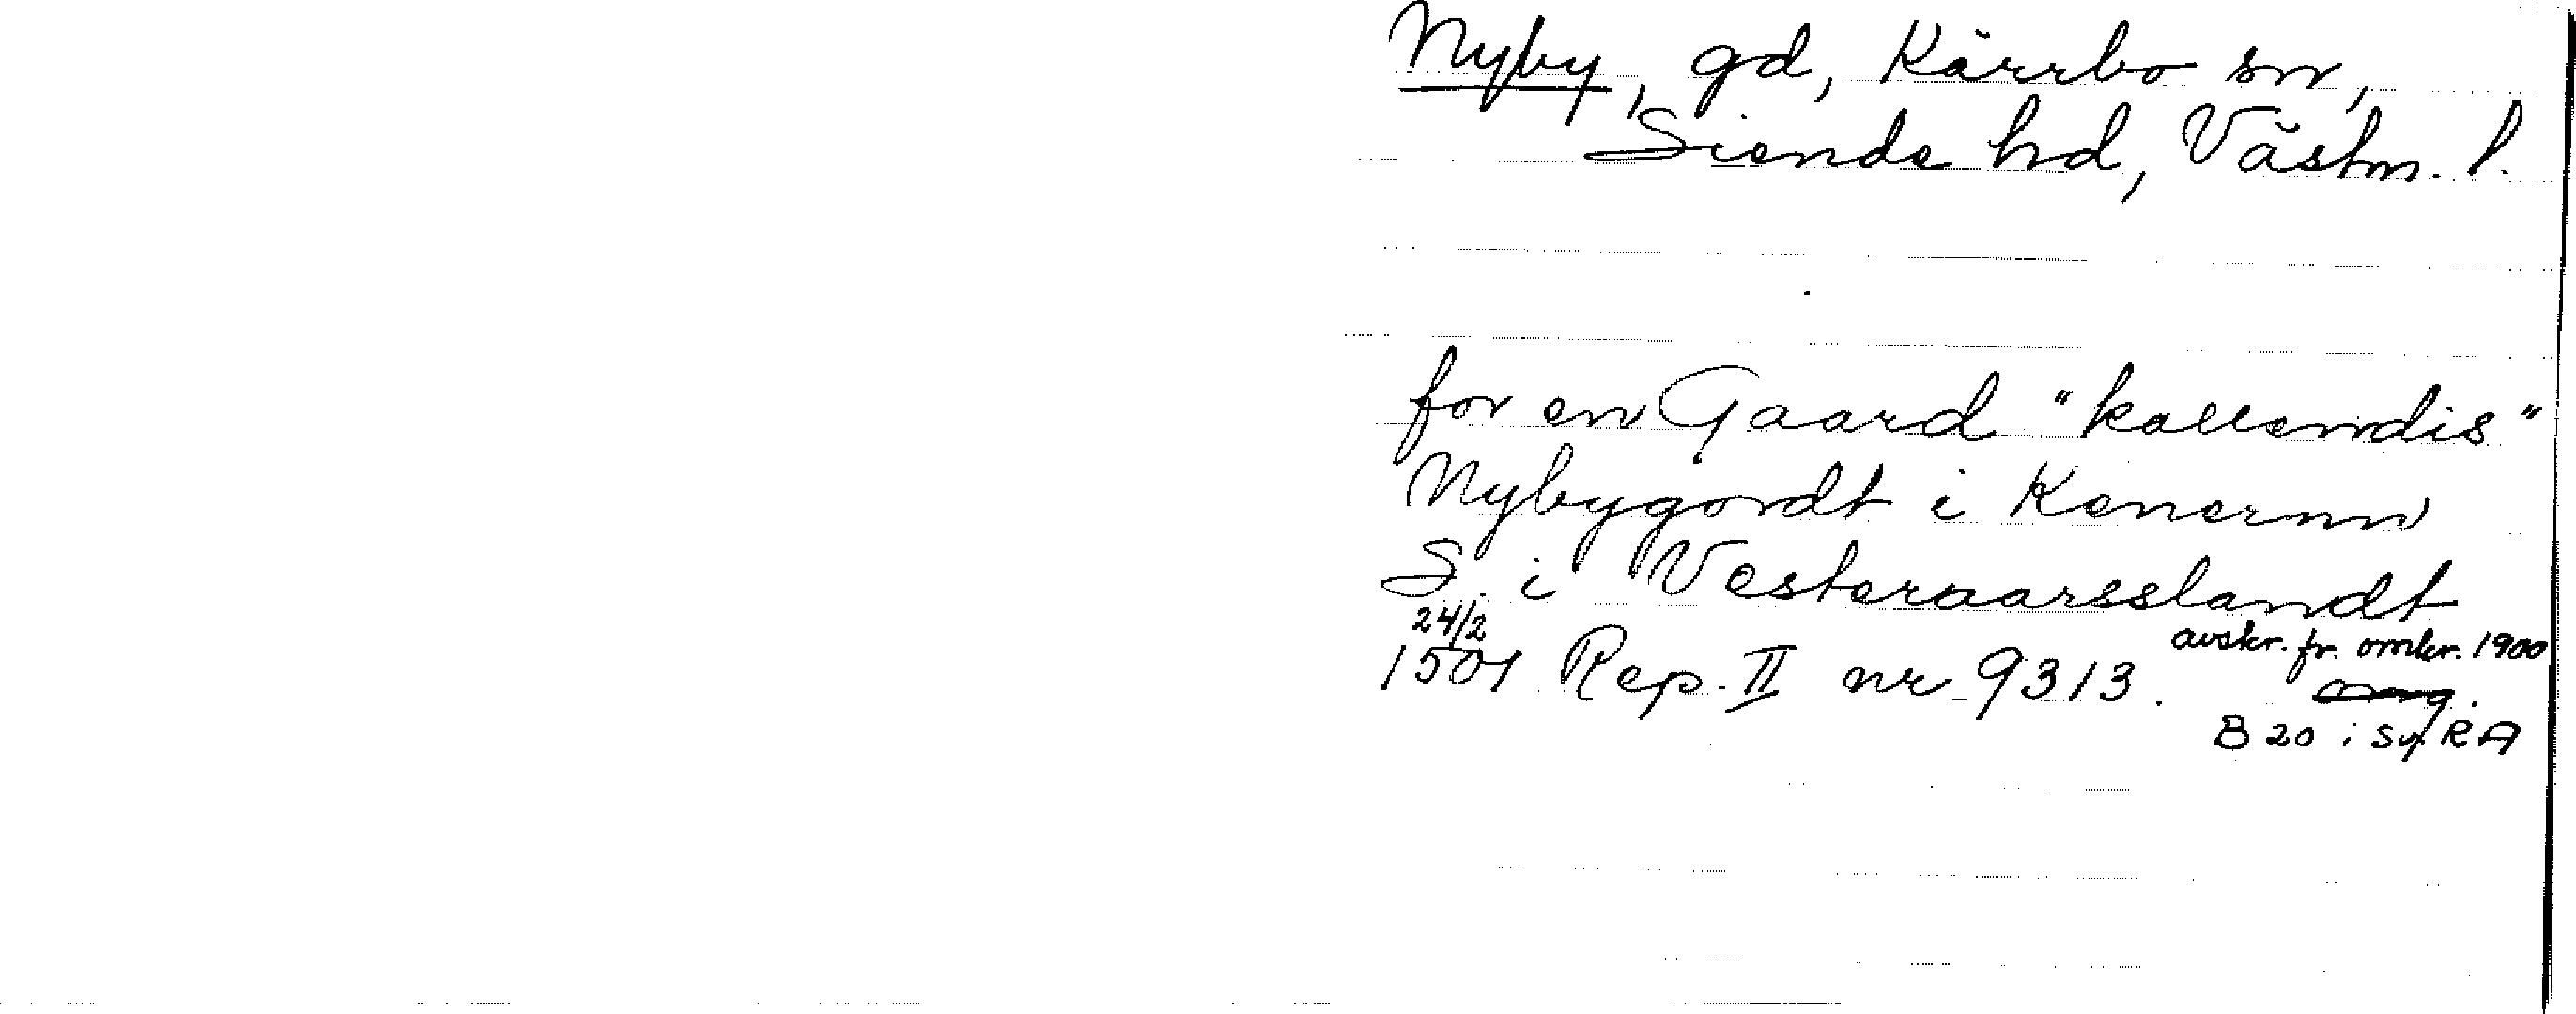 Nyby, gd, Kärrbo sn,
Siende hd, Västm. l.
for en Gaard "kallendis"
Nybygordt i Kenernn
S. i Vesteraarsslandt
24/2
1501 Rep. II nr 9313.
avskr. fr. omkr. 1900
B 20 i Sv RA